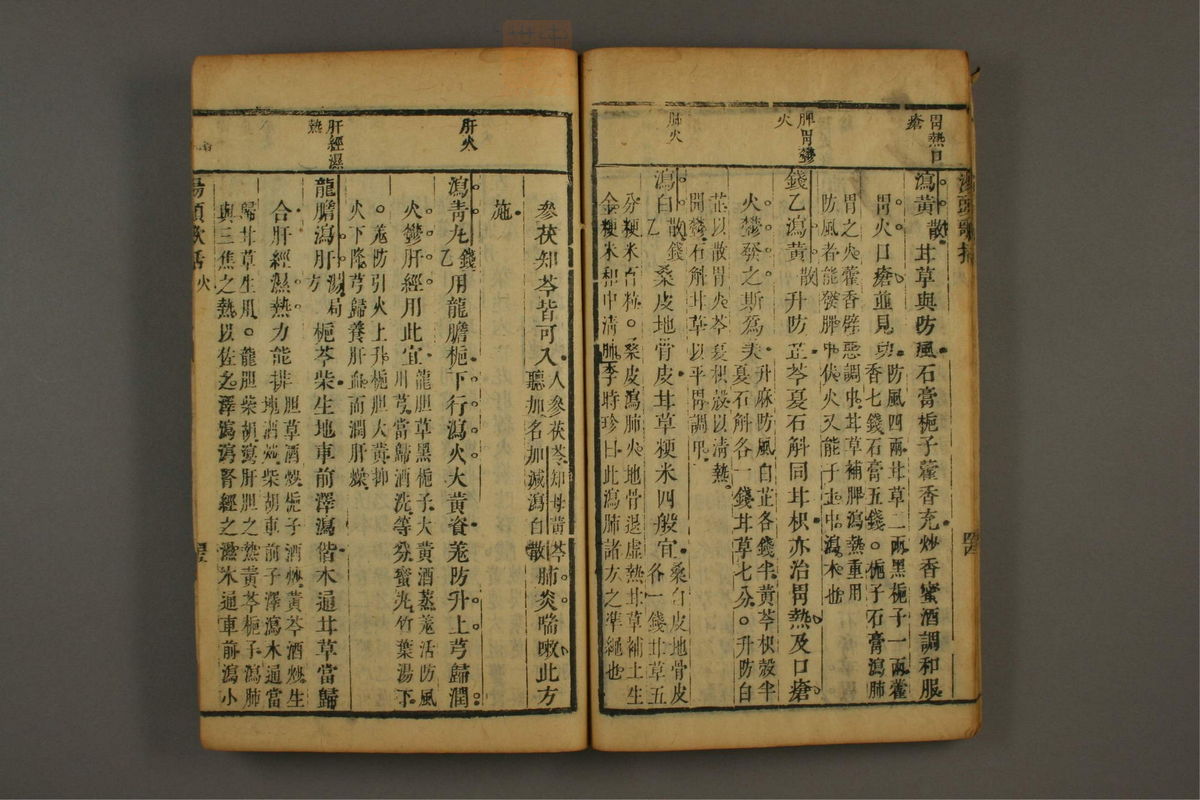 湯頭歌括
胃熱口
瘡
瀉黃散甘草與防風石膏梔子藿香充炒香蜜酒調和服
胃火口瘡並見功防風四兩甘草二兩黑梔子一兩藿
香七錢石膏五錢。梔子石膏瀉肺
胃之火藿香辟惡調中甘草補脾瀉熱重用
防風者能發脾中伏火又能于土中瀉木也
脾胃鬱
火
錢乙瀉黃散升防芷芩夏石斛同甘枳亦治胃熱及口瘡
火鬱發之斯爲美升麻防風白芷各錢半黃芩枳殼半
夏石斛各一錢甘草七分。升防白
芷以散胃火芩夏枳殼以清熱
開鬱石斛甘草以平胃調中
肺火
瀉白散錢
乙桑皮地骨皮甘草粳米四般宜桑白皮地骨皮
各一錢甘草五
分粳米百粒。桑皮瀉肺火地骨退虛熱甘草補土生
金粳米和中清肺李時珍曰此瀉肺諸方之準繩也
參茯知芩皆可入人參茯苓知母黃芩
聽加名加減瀉白散肺炎喘嗽此方
施
肝火
瀉青丸錢
乙用龍膽梔下行瀉火大黃資羌防升上芎歸潤
火鬱肝經用此宜龍胆草黑梔子大黃酒蒸羌活防風
川芎當歸酒洗等分蜜丸竹葉湯下
。羌防引火上升梔胆大黃抑
火下降芎歸養肝血而潤肝燥
肝經濕
熱
龍膽瀉肝湯局
方梔芩柴生地車前澤瀉偕木通甘草當歸
合肝經濕熱力能排胆草酒炒梔子酒炒黃芩酒炒生
地酒炒柴胡車前子澤瀉木通當
歸甘草生用。龍胆柴胡瀉肝胆之熱黃芩梔子瀉肺
與三焦之熱以佐之澤瀉瀉腎經之濕木通車前瀉小
湯頭歌括 火